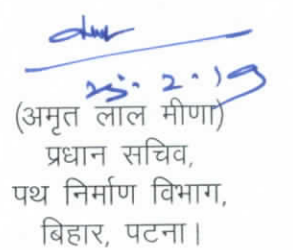 25.2.19
(अमृत लाल मीणा)
प्रधान सचिव,
पथ निर्माण विभाग,
बिहार, पटना।